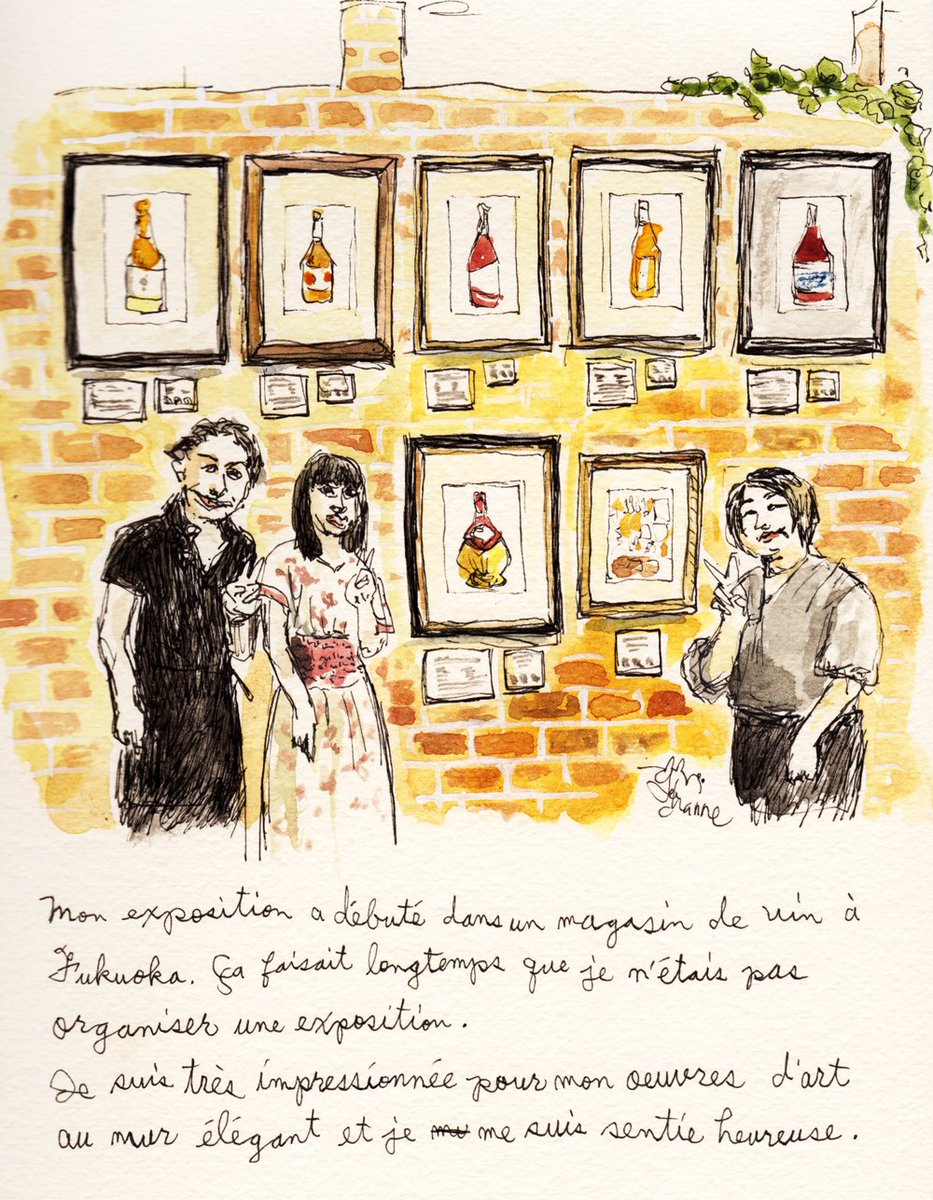 Jeanne
Mon exposition a débuté dans un magasin de vin à
Fukuoka. Ça faisait longtemps que je n'étais pas
organiser une exposition.
Je suis très impressionnée pour mon oeuvres d'art
au mur élégant et je me suis sentie heureuse.